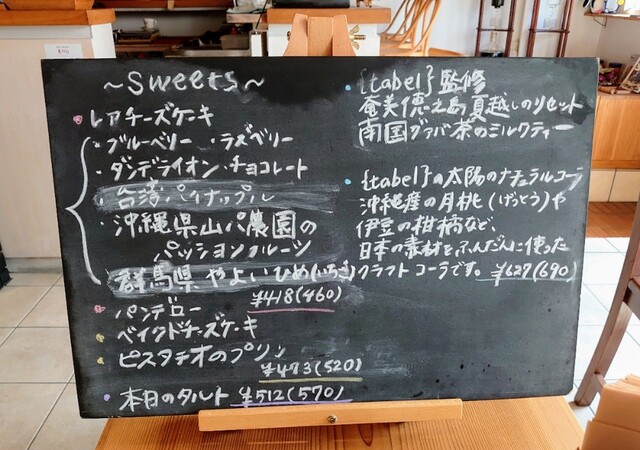 ~Sweets~
・レアチーズケーキ
・ブルーベリー ・ラズベリー
・ダンデライオン・チョコレート
・台湾パイナップル
・沖縄県山パ農園の
パッションフルーツ
群馬県やよいひめ(いちご)
¥418(460)
・パンデロー
・ベイクドチーズケーキ
・ピスタチオのプリン
¥473(520)
・本日のタルト ¥512(570)
・{tabel}監修
奄美徳之島夏越しのリセット
南国グァバ茶のミルクティー
・{tabel}の太陽のナチュラルコーラ
沖縄産の月桃(げっとう)や
伊豆の柑橘など、
日本の素材をふんだんに使った
クラフトコーラです。¥627(690)